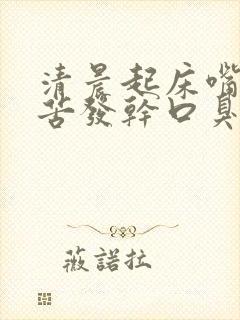 清晨起床嘴
苦發幹口臭
薇諾拉